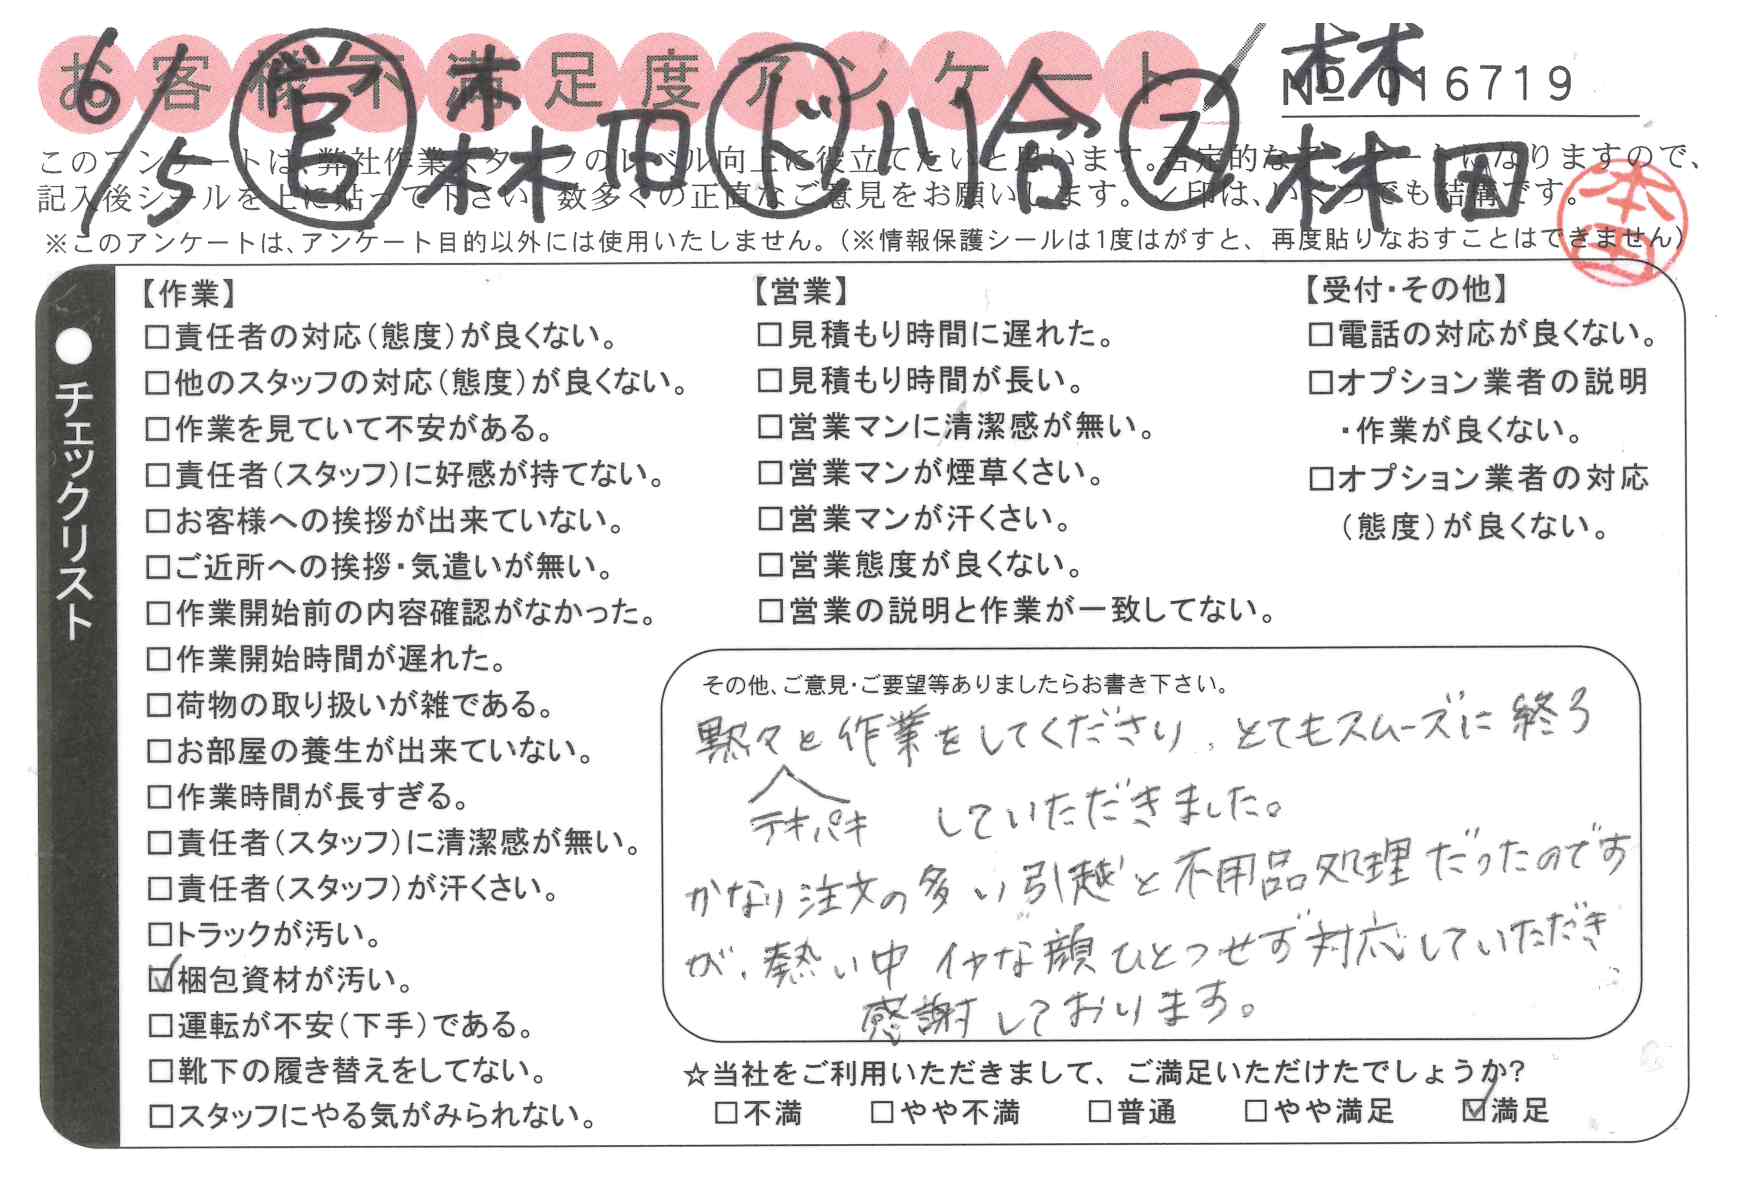 お客様不満足度アンケート
6/5 営 森田 ド 川合 ス 森田
№ 016719
このアンケートは、弊社作業スタッフのレベル向上に役立てたいと思います。否定的なアンケートになりますので、
記入後シールを上に貼って下さい。数多くの正直なご意見をお願いします。✓印は、いくつでも結構です。
※このアンケートは、アンケート目的以外には使用いたしません。(※情報保護シールは1度はがすと、再度貼りなおすことはできません)
本田
●チェックリスト
【作業】
□責任者の対応(態度)が良くない。
□他のスタッフの対応(態度)が良くない。
□作業を見ていて不安がある。
□責任者(スタッフ)に好感が持てない。
□お客様への挨拶が出来ていない。
□ご近所への挨拶・気遣いが無い。
□作業開始前の内容確認がなかった。
□作業開始時間が遅れた。
□荷物の取り扱いが雑である。
□お部屋の養生が出来ていない。
□作業時間が長すぎる。
□責任者(スタッフ)に清潔感が無い。
□責任者(スタッフ)が汗くさい。
□トラックが汚い。
☑梱包資材が汚い。
□運転が不安(下手)である。
□靴下の履き替えをしてない。
□スタッフにやる気がみられない。
【営業】
□見積もり時間に遅れた。
□見積もり時間が長い。
□営業マンに清潔感が無い。
□営業マンが煙草くさい。
□営業マンが汗くさい。
□営業態度が良くない。
□営業の説明と作業が一致してない。
【受付・その他】
□電話の対応が良くない。
□オプション業者の説明
・作業が良くない。
□オプション業者の対応
(態度)が良くない。
その他、ご意見・ご要望等ありましたらお書き下さい。
黙々と作業をしてくださり、とてもスムーズに終ろ
テキパキ していただきました。
かなり注文の多い引越と不用品処理だったのです
が、熱い中イヤな顔ひとつせず対応していただき
感謝しております。
☆当社をご利用いただきまして、ご満足いただけたでしょうか?
□不満 □やや不満 □普通 □やや満足 ☑満足